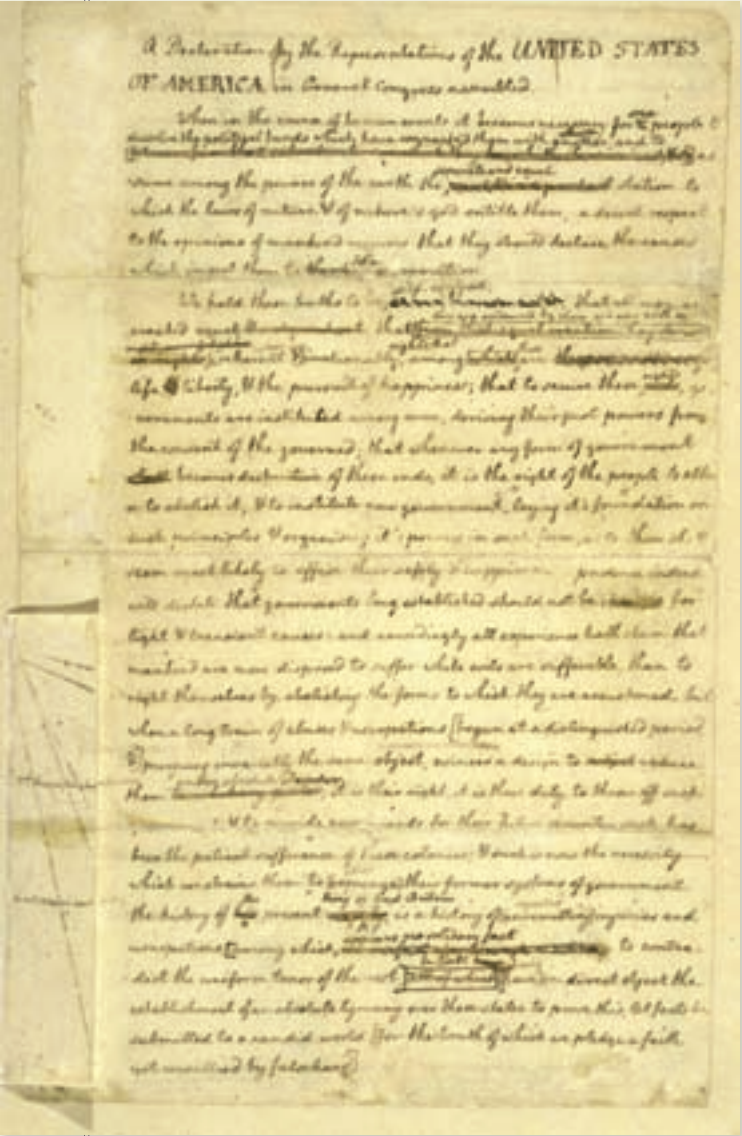 A Declaration by the Representatives of the UNITED STATES
OF AMERICA, in General Congress assembled.
When in the course of human events it becomes necessary for people
dissolve the political bands which have connected them with another, and to
-sume among the powers of the earth the separate and equal station to
which the laws of nature & of nature's god entitle them, a decent respect
to the opinions of mankind requires that they should declare the causes
which impel them to the separation.
We hold these truths to be self-evident, that all men are
created equal that
inherent & inalienable among
life & liberty, & the pursuit of happiness; that to secure these rights, go
vernments are instituted among men, deriving their just powers from
the consent of the governed; that whenever any form of government
becomes destructive of these ends, it is the right of the people to alter
or to abolish it, & to institute new government, laying it's foundation on
such principles & organising it's powers in such form, as to them shall
seem most likely to effect their safety & happiness. prudence indeed
will dictate that governments long established should not be changed for
light & transient causes: and accordingly all experience hath shewn that
mankind are more disposed to suffer while evils are sufferable, than to
right themselves by abolishing the forms to which they are accustomed. but
when a long train of abuses & usurpations [begun at a distinguished period
&] pursuing invariably the same object, evinces a design to reduce
them under absolute Despotism it is their right, it is their duty to throw off such
& to provide new guards for their future security. such has
been the patient sufferance of these colonies; & such is now the necessity
which constrains them to expunge their former systems of government.
the history of the present king of Great Britain is a history of injuries and
usurpations [among which, appears no solitary fact to contra-
dict the uniform tenor of the rest have in direct object the
establishment of an absolute tyranny over these states. to prove this, let facts be
submitted to a candid world [for the truth of which we pledge a faith
yet unsullied by falsehood]